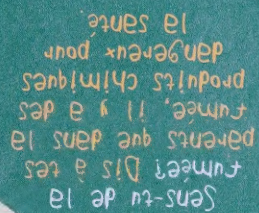 Sens-tu de la
fumée? Dis à tes
parents que dans la
fumée, il y a des
produits chimiques
dangereux pour
la santé.